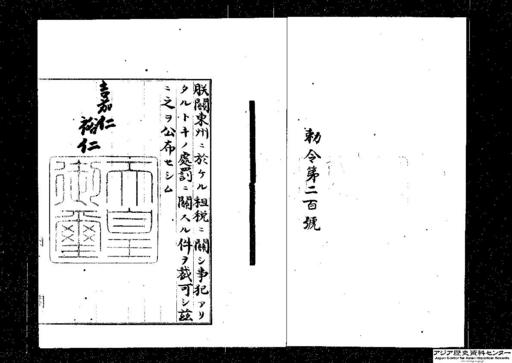 勅令第二百號
朕關東州ニ於ケル租税ニ關シ事犯アリ
タルトキノ處罰ニ關スル件ヲ裁可シ茲
ニ之ヲ公布セシム
嘉仁
裕仁
天皇
御璽
アジア歴史資料センター
Japan Center for Asian Historical Records